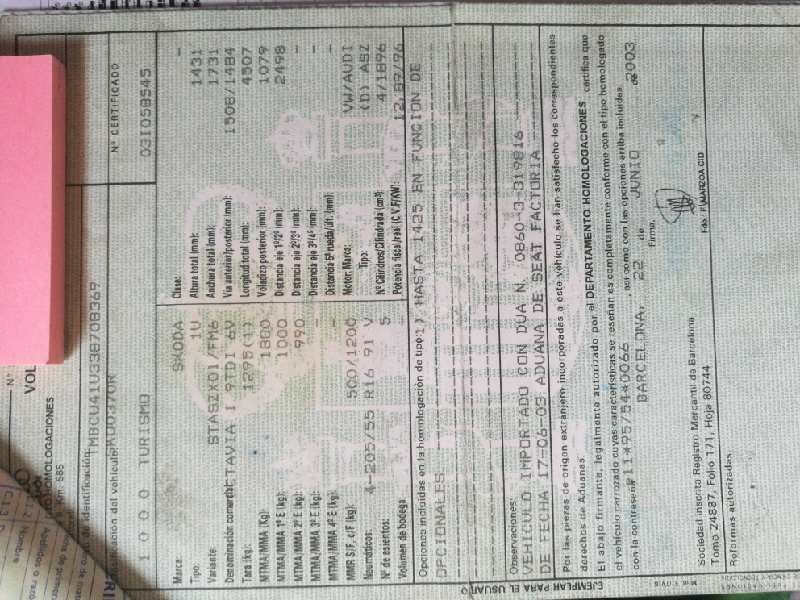 Nº CERTIFICADO
031058545
HOMOLOGACIONES
Km. 585
TMBCU41U338708367
1 0 0 0 TURISMO
Marca: SKODA
Tipo: 1U
Variante:
Denominación comercial: OCTAVIA 1 9TDI 6V
Tara (kg): 1295(1)
MTMA/MMA (Kg): 1800
MTMA/MMA 1º E (kg): 1000
MTMA/MMA 2º E (kg): 990
MTMA/MMA 3º E (kg): -
MTMA/MMA 4º E (kg): -
MMR S/F, c/F (kg): 500/1200
Neumáticos: 4-205/55 R16 91 V
Nº de asientos: 5
Volumen de bodega:
Clase: -
Altura total (mm): 1431
Anchura total (mm): 1731
Vía anterior/posterior (mm): 1508/1484
Longitud total (mm): 4507
Voladizo posterior (mm): 1079
Distancia eje 1º/2º (mm): 2498
Distancia eje 2º/3º (mm): -
Distancia eje 3º/4º (mm): -
Distancia 5ª rueda/últ. (mm): -
Motor: Marca: VW/AUDI
Tipo: (D) ASZ
Nº Cilindros/Cilindrada (cm3): 4/1896
Potencia fiscal/real (C.V.F/KW): 12.89/96
Opciones incluidas en la homologación de tipo: 1) HASTA 1425 EN FUNCION DE
OPCIONALES
Observaciones:
VEHICULO IMPORTADO CON DUA N. 0860-3-319816
DE FECHA 17-06-03 ADUANA DE SEAT FACTORIA
Por las piezas de origen extranjero incorporadas a este vehículo se han satisfecho los correspondientes
derechos de Aduanas.
El abajo firmante, legalmente autorizado por el DEPARTAMENTO HOMOLOGACIONES certifica que
el vehículo carrozado cuyas características se reseñan es completamente conforme con el tipo homologado
con la contraseña así como con las opciones arriba incluidas.
BARCELONA, 22 de JUNIO de 2003
Firma,
Sociedad inscrita Registro Mercantil de Barcelona
Tomo 24887, Folio 171, Hoja 80744
Reformas autorizadas
EJEMPLAR PARA EL USUARIO